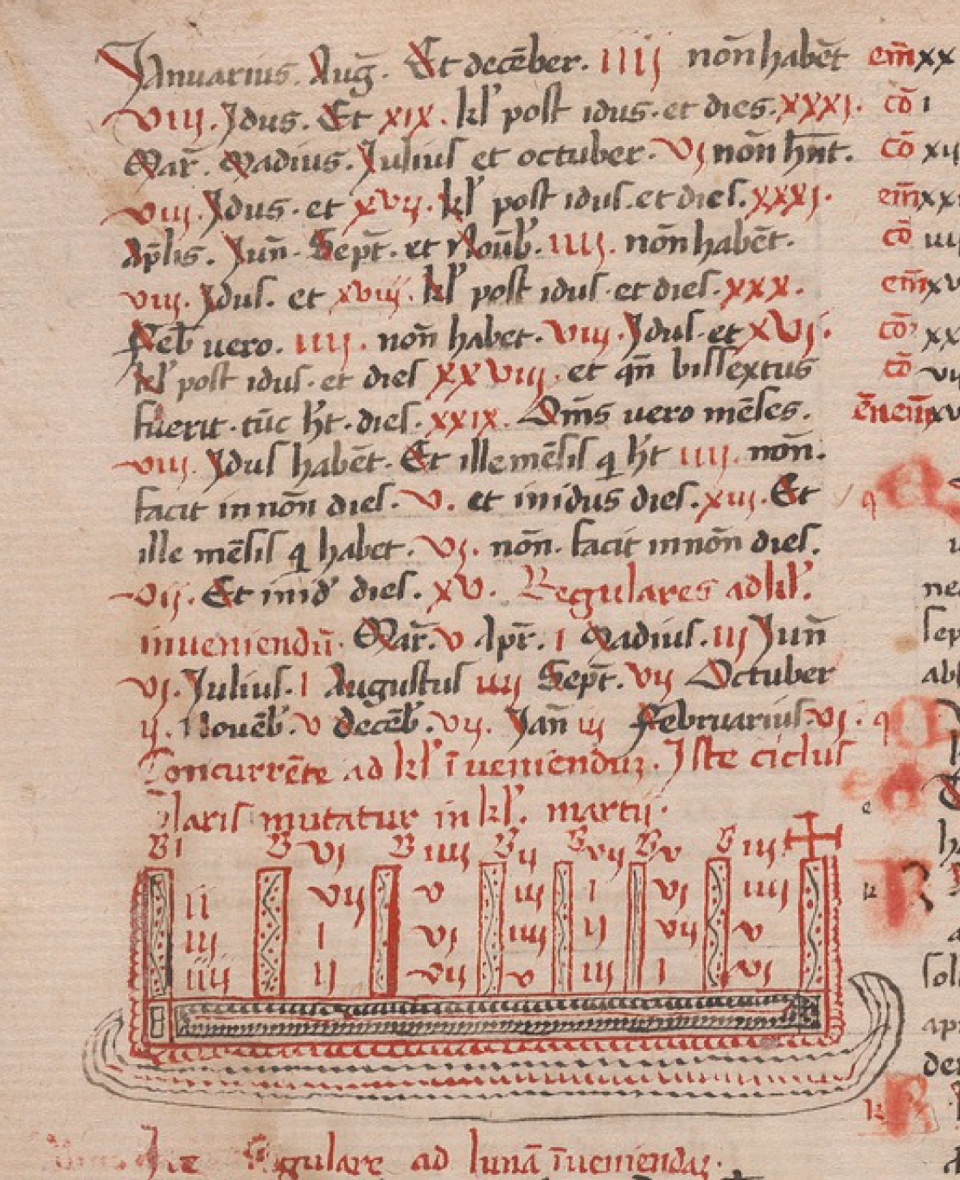 Januarius. Aug̅. Et decēber. IIIJ non̄ habēt
VIIJ. Jdus. Et XIX. kl̄ post idus. et dies. XXXJ.
Mar̄. Madius. Julius et octuber. VJ non̄ hn̄t.
VIIJ. Jdus. et XVIJ. kl̄ post idus. et dies. XXXJ.
Ap̄lis. Jun̄. Sept̄. et Nouēb̄. IIIJ. non̄ habēt.
VIIJ. Jdus. et XVIIJ. kl̄ post idus. et dies. XXX.
Feb̄ uero. IIIJ. non̄ habet. VIIJ. Jdus. et XVJ.
kl̄ post idus. et dies XXVIIJ. et qn̄ bissextus
fuerit. tūc h̄t. dies. XXIX. Om̄s uero mēses.
VIIJ. Jdus habēt. Et ille mēsis q̄ h̄t IIIJ. non̄.
facit in non̄ dies. V. et in idus dies. XIIJ. Et
ille mēsis q̄ habet. VJ. non̄. facit in non̄ dies.
VIJ. Et in id̄ dies. XV. Regulares ad kl̄.
inueniendū. Mar̄. V Apr̄. I Madius. IIJ Jun̄
VJ. Julius. I Augustus IIIJ Sept̄. VIJ Octuber
IJ. Nouēb̄. V decēb̄. VIJ. Jan̄ IIJ Februarius. VJ.
Concurrēte ad kl̄ īuenienduꝫ. Iste ciclus
laris mutatur in kl̄. martij.
B I B VJ B IIIJ B IJ B VIJ B V B IIJ
IJ VIJ V IIJ I VJ IIIJ
IIJ I VJ IIIJ IJ VIJ V
IIIJ IJ VIJ V IIJ I VJ
gulare ad lunā īueniendaꝫ.
em̄ XX
cō I
cō XIJ
em̄
cō
em̄ XV
cō XX
cō VIJ